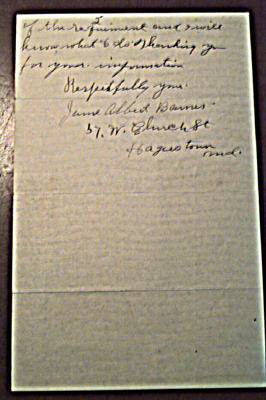 of the requirment and I will
know what to do Thanking you
for your information
Respectfully your.
Albert Barnes
57. W. Church St
Hagerstown
Md.